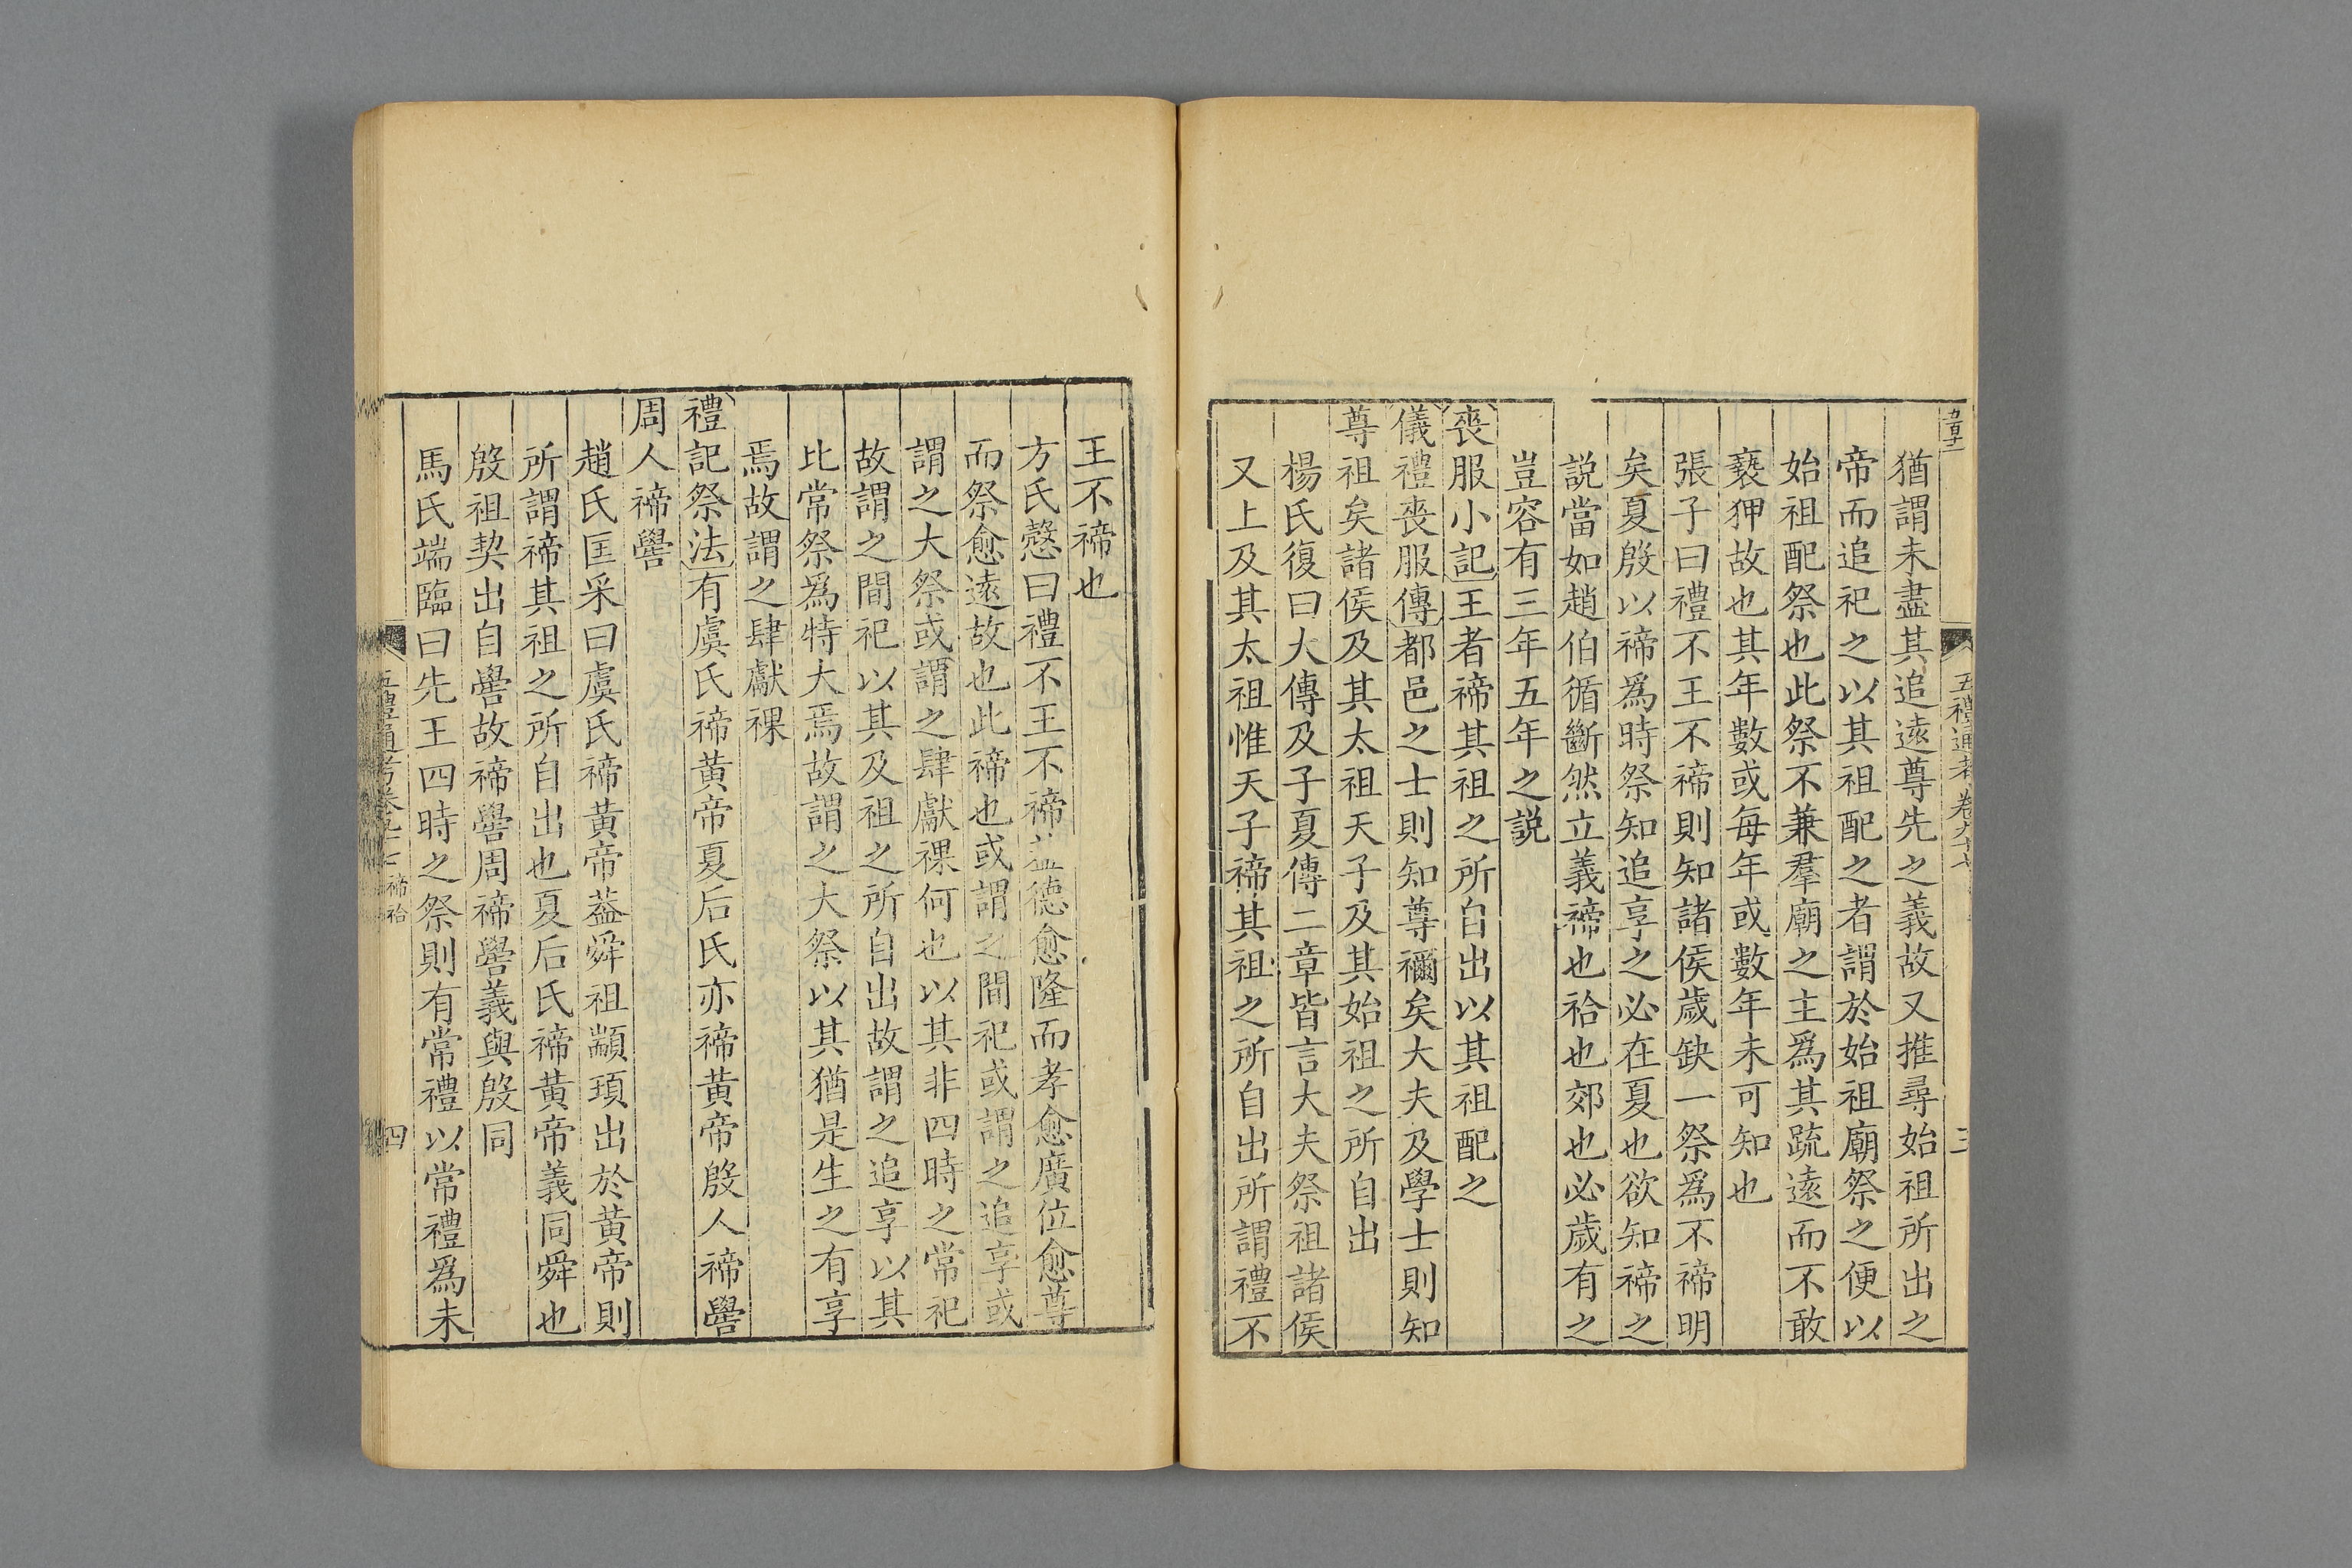 五禮通考卷九十七
三
猶謂未盡其追遠尊先之義故又推尋始祖所出之
帝而追祀之以其祖配之者謂於始祖廟祭之便以
始祖配祭也此祭不兼羣廟之主爲其䟽遠而不敢
褻狎故也其年數或每年或數年未可知也
張子曰禮不王不禘則知諸侯歲缺一祭爲不禘明
矣夏殷以禘爲時祭知追享之必在夏也欲知禘之
説當如趙伯循斷然立義禘也祫也郊也必歲有之
豈容有三年五年之説
喪服小記王者禘其祖之所自出以其祖配之
儀禮喪服傳都邑之士則知尊禰矣大夫及學士則知
尊祖矣諸侯及其太祖天子及其始祖之所自出
楊氏復曰大傳及子夏傳二章皆言大夫祭祖諸侯
又上及其太祖惟天子禘其祖之所自出所謂禮不
王不禘也
方氏慤曰禮不王不禘葢德愈隆而孝愈廣位愈尊
而祭愈遠故也此禘也或謂之間祀或謂之追享或
謂之大祭或謂之肆獻祼何也以其非四時之常祀
故謂之間祀以其及祖之所自出故謂之追享以其
比常祭爲特大焉故謂之大祭以其猶是生之有享
焉故謂之肆獻祼
禮記祭法有虞氏禘黃帝夏后氏亦禘黃帝殷人禘嚳
周人禘嚳
趙氏匡采曰虞氏禘黃帝葢舜祖顓頊出於黃帝則
所謂禘其祖之所自出也夏后氏禘黃帝義同舜也
殷祖契出自嚳故禘嚳周禘嚳義與殷同
馬氏端臨曰先王四時之祭則有常禮以常禮爲未
五禮通考卷九十七 禘祫
四